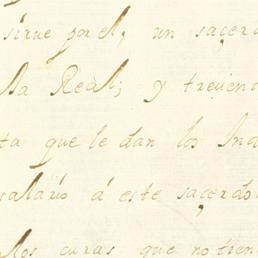 sirve por el, un sacerd
lla Real; y trecient
ta que le dan los Ind
salario á este sacerdo
los curas que no tien